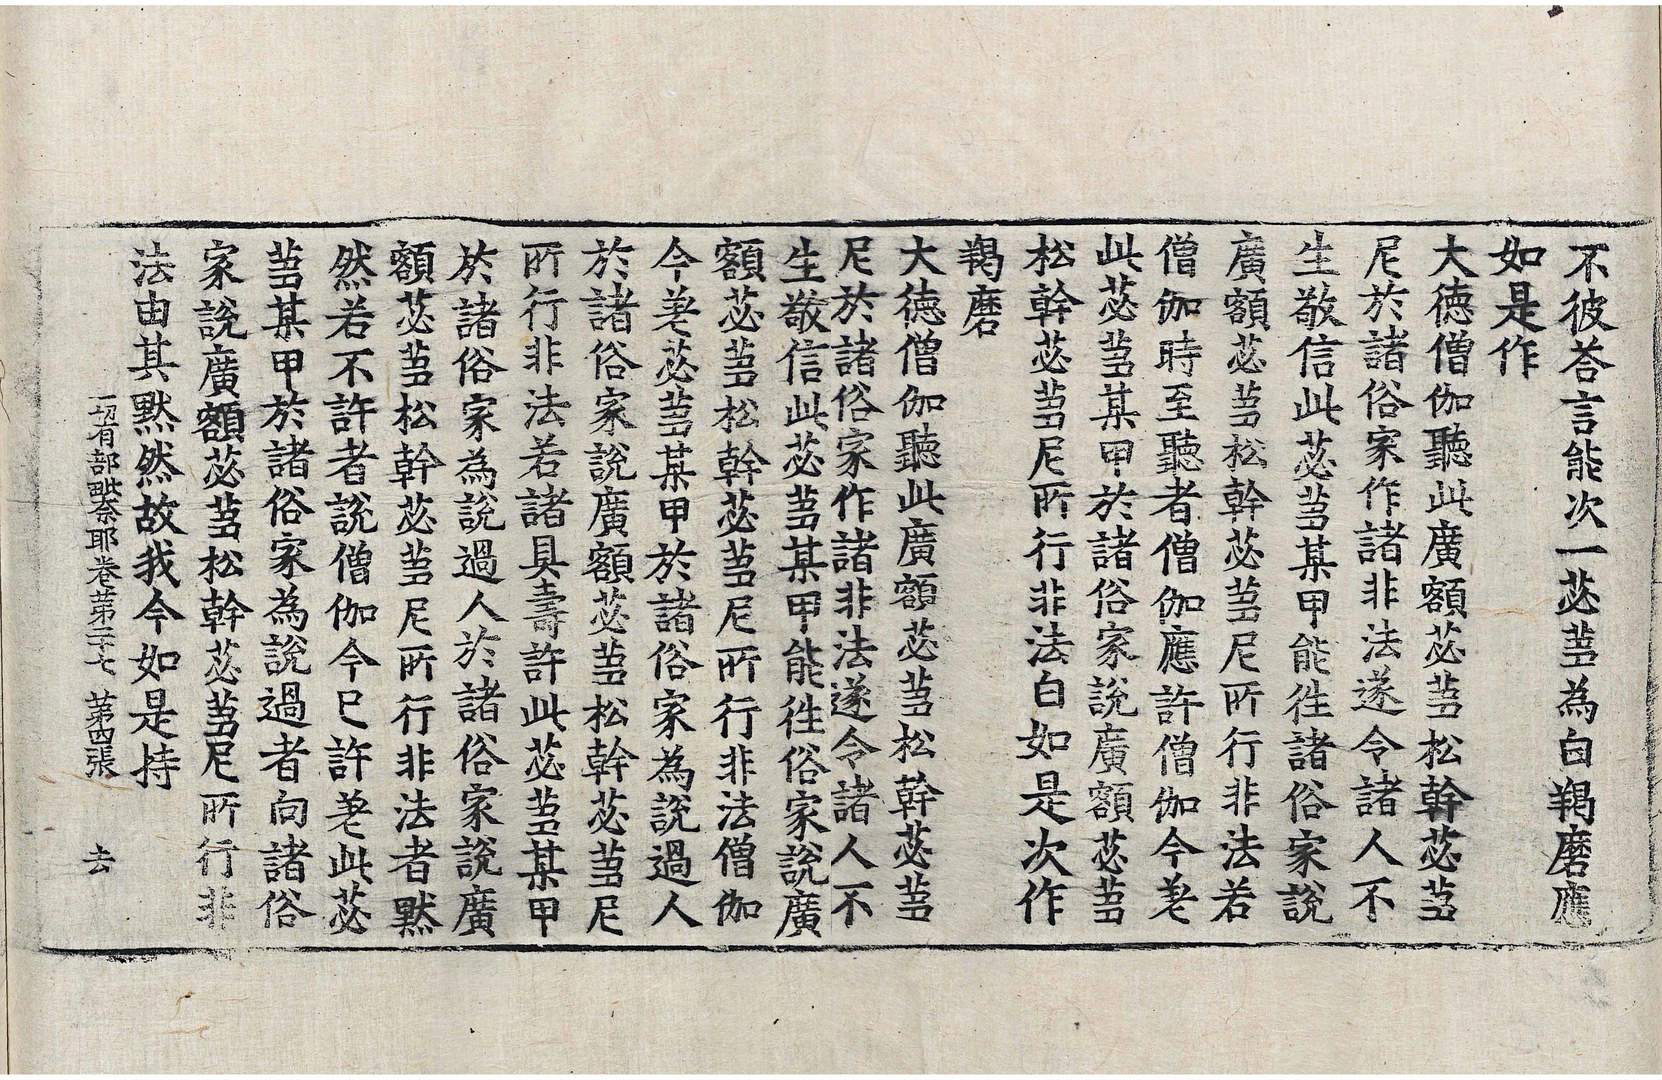 不彼荅言能次一苾芻為白羯磨應
如是作
大德僧伽聽此廣額苾芻松幹苾芻
尼於諸俗家作諸非法遂令諸人不
生敬信此苾芻某甲能往諸俗家說
廣額苾芻松幹苾芻尼所行非法若
僧伽時至聽者僧伽應許僧伽今差
此苾芻某甲於諸俗家說廣額苾芻
松幹苾芻尼所行非法白如是次作
羯磨
大德僧伽聽此廣額苾芻松幹苾芻
尼於諸俗家作諸非法遂令諸人不
生敬信此苾芻某甲能往俗家說廣
額苾芻松幹苾芻尼所行非法僧伽
今差苾芻某甲於諸俗家為說過人
於諸俗家說廣額苾芻松幹苾芻尼
所行非法若諸具壽許此苾芻某甲
於諸俗家為說過人於諸俗家說廣
額苾芻松幹苾芻尼所行非法者默
然若不許者說僧伽今已許差此苾
芻某甲於諸俗家為說過者向諸俗
家說廣額苾芻松幹苾芻尼所行非
法由其默然故我今如是持
一切有部毗奈耶卷苐三十七 苐四張 去